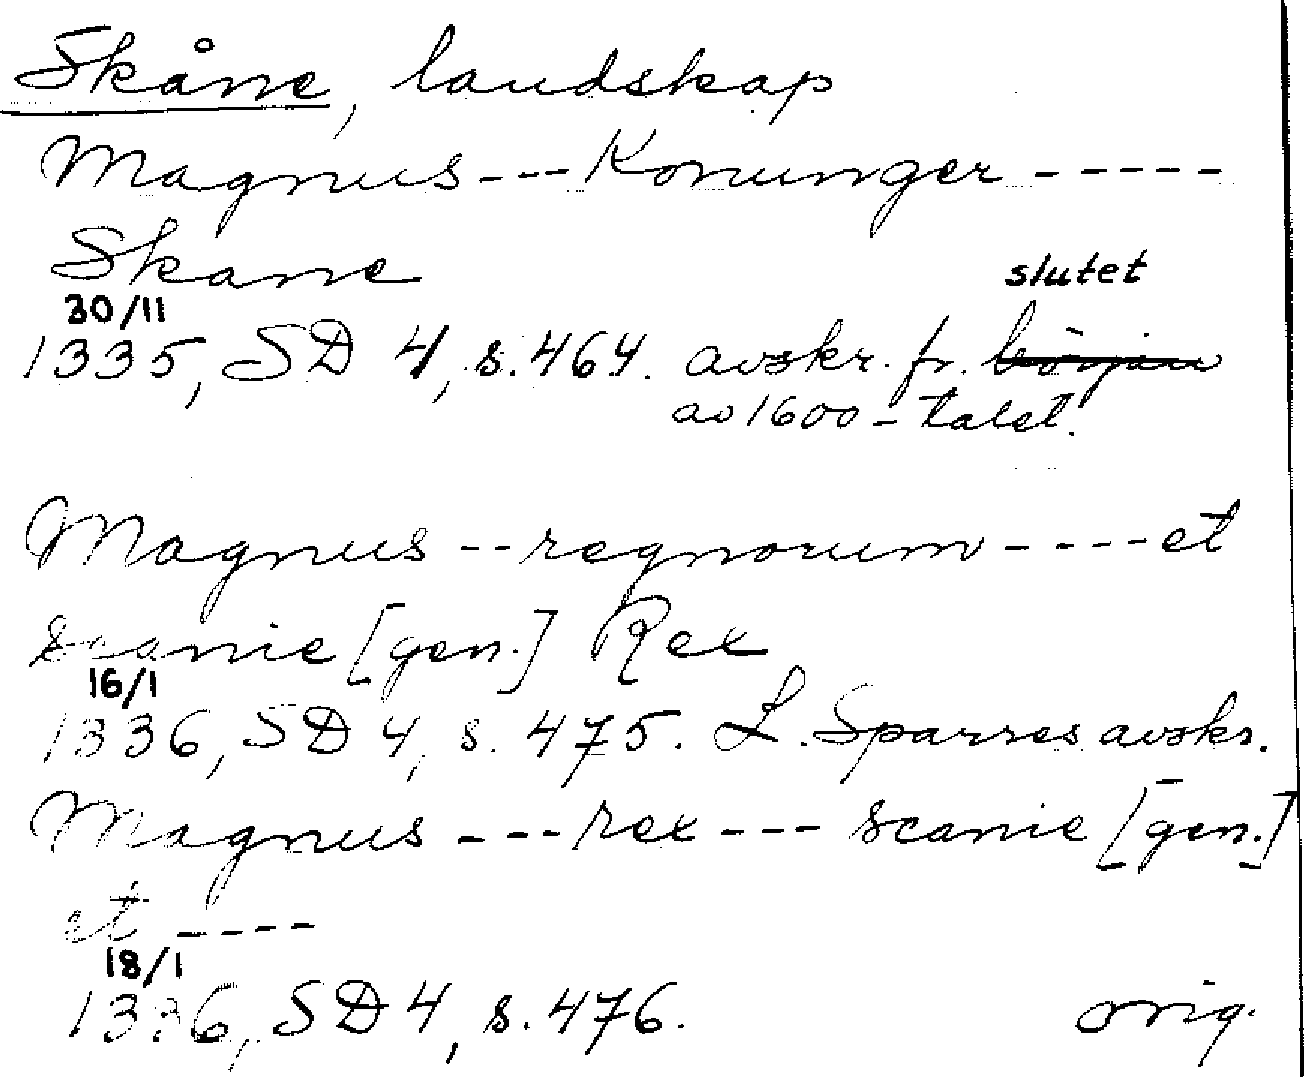 Skåne, landskap
Magnus---Konunger-----
Skane
30/11 slutet
1335, SD 4, s.464. avskr. fr. början
av 1600-talet.
Magnus--regnorum----et
scanie [gen.] Rex
16/1
1336, SD 4, s. 475. L. Sparres avskr.
Magnus---rex---scanie [gen.]
et----
18/1
1336, SD 4, s. 476. orig.